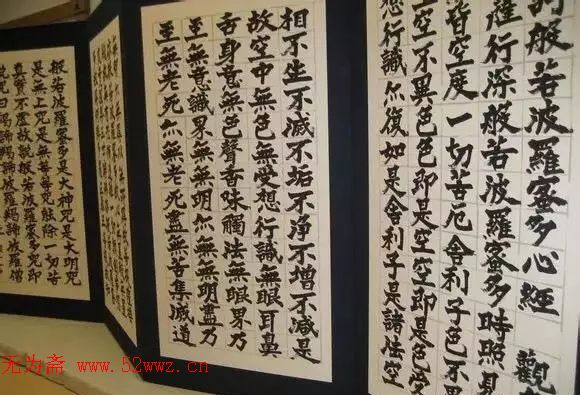 訶般若波羅蜜多心經 觀
薩行深般若波羅蜜多時照見
皆空度一切苦厄舍利子色不異
空不異色色即是空空即是色受
想行識亦復如是舍利子是諸法空
相不生不滅不垢不淨不增不減是
故空中無色無受想行識無眼耳鼻
舌身意無色聲香味觸法無眼界乃
至無意識界無無明亦無無明盡乃
至無老死亦無老死盡無苦集滅道
般若波羅蜜多是大神咒是大明咒
是無上咒是無等等咒能除一切苦
真實不虛故說般若波羅蜜多咒即
說咒曰揭諦揭諦波羅揭諦波羅僧
无为斋 www.52wwz.cn